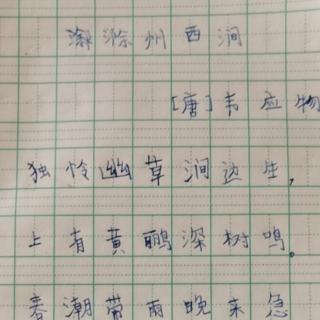 滁州西涧
[唐]韦应物
独怜幽草涧边生，
上有黄鹂深树鸣。
春潮带雨晚来急